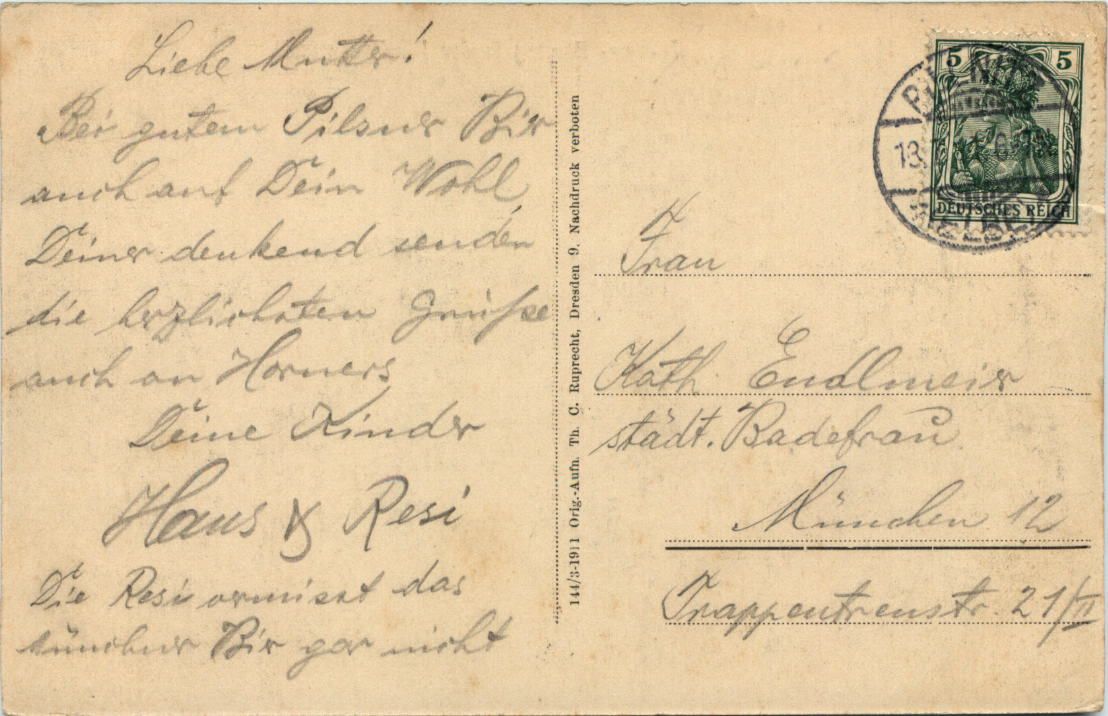 Liebe Mutter!
Bei gutem Pilsner Bir
auch auf Dein Wohl,
Deiner denkend senden
die herzlichsten Grüße
auch an Horners
Deine Kinder
Hans & Resi
Die Resi vermisst das
Münchner Bir gar nicht
144/3-1911 Orig.-Aufn. Th. C. Ruprecht, Dresden 9. Nachdruck verboten
5 5
DEUTSCHES REICH
Frau
Kath. Endlmeier
städt. Badefrau
München 12
Trappentreustr. 21/II